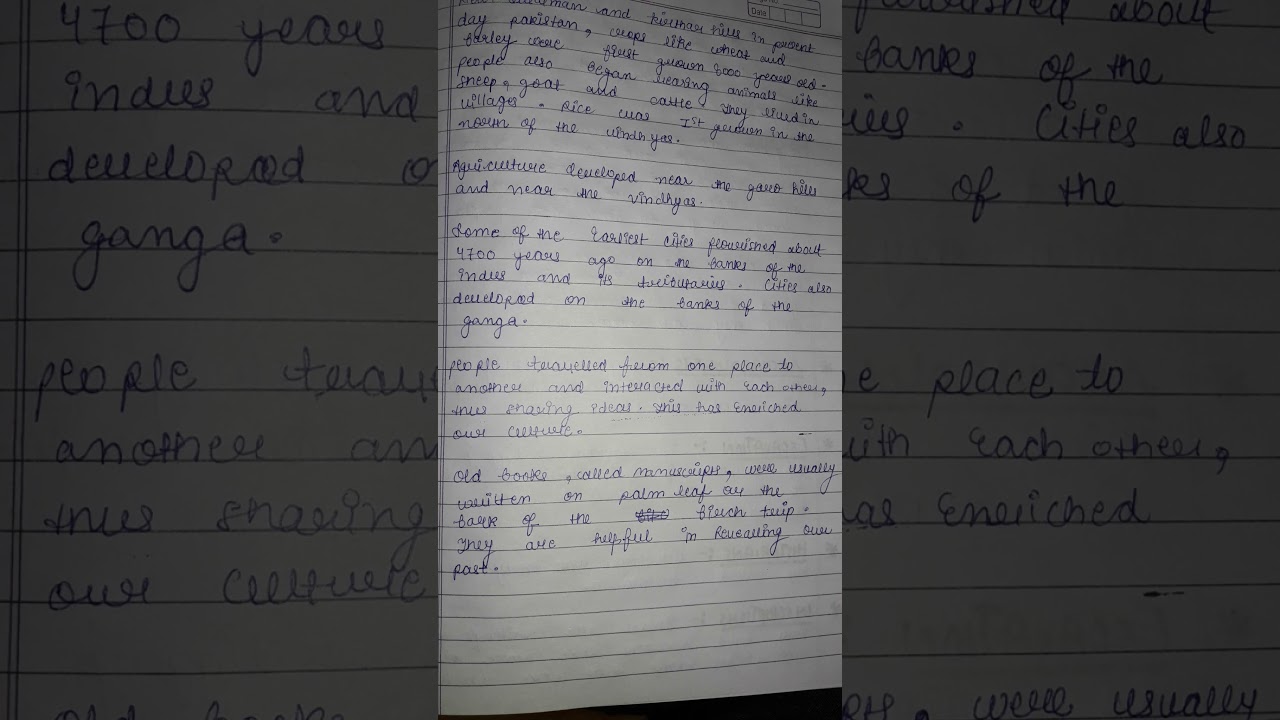 Sulaiman and kirthar hills in present
Date
day pakistan, crops like wheat and
barley were first grown 8000 years old.
people also began rearing animals like
sheep, goat and cattle they lived in
villages. Rice was 1st grown in the
north of the vindhyas.
Agriculture developed near the garo hills
and near the vindhyas.
Some of the Earliest cities flourished about
4700 years ago on the banks of the
indus and its tributaries. Cities also
developed on the banks of the
ganga.
people travelled from one place to
another and interacted with each other,
thus sharing ideas. this has enriched
our culture.
old books, called manuscripts, were usually
written on palm leaf or the
bark of the birch
They are helpful in revealing our
past.